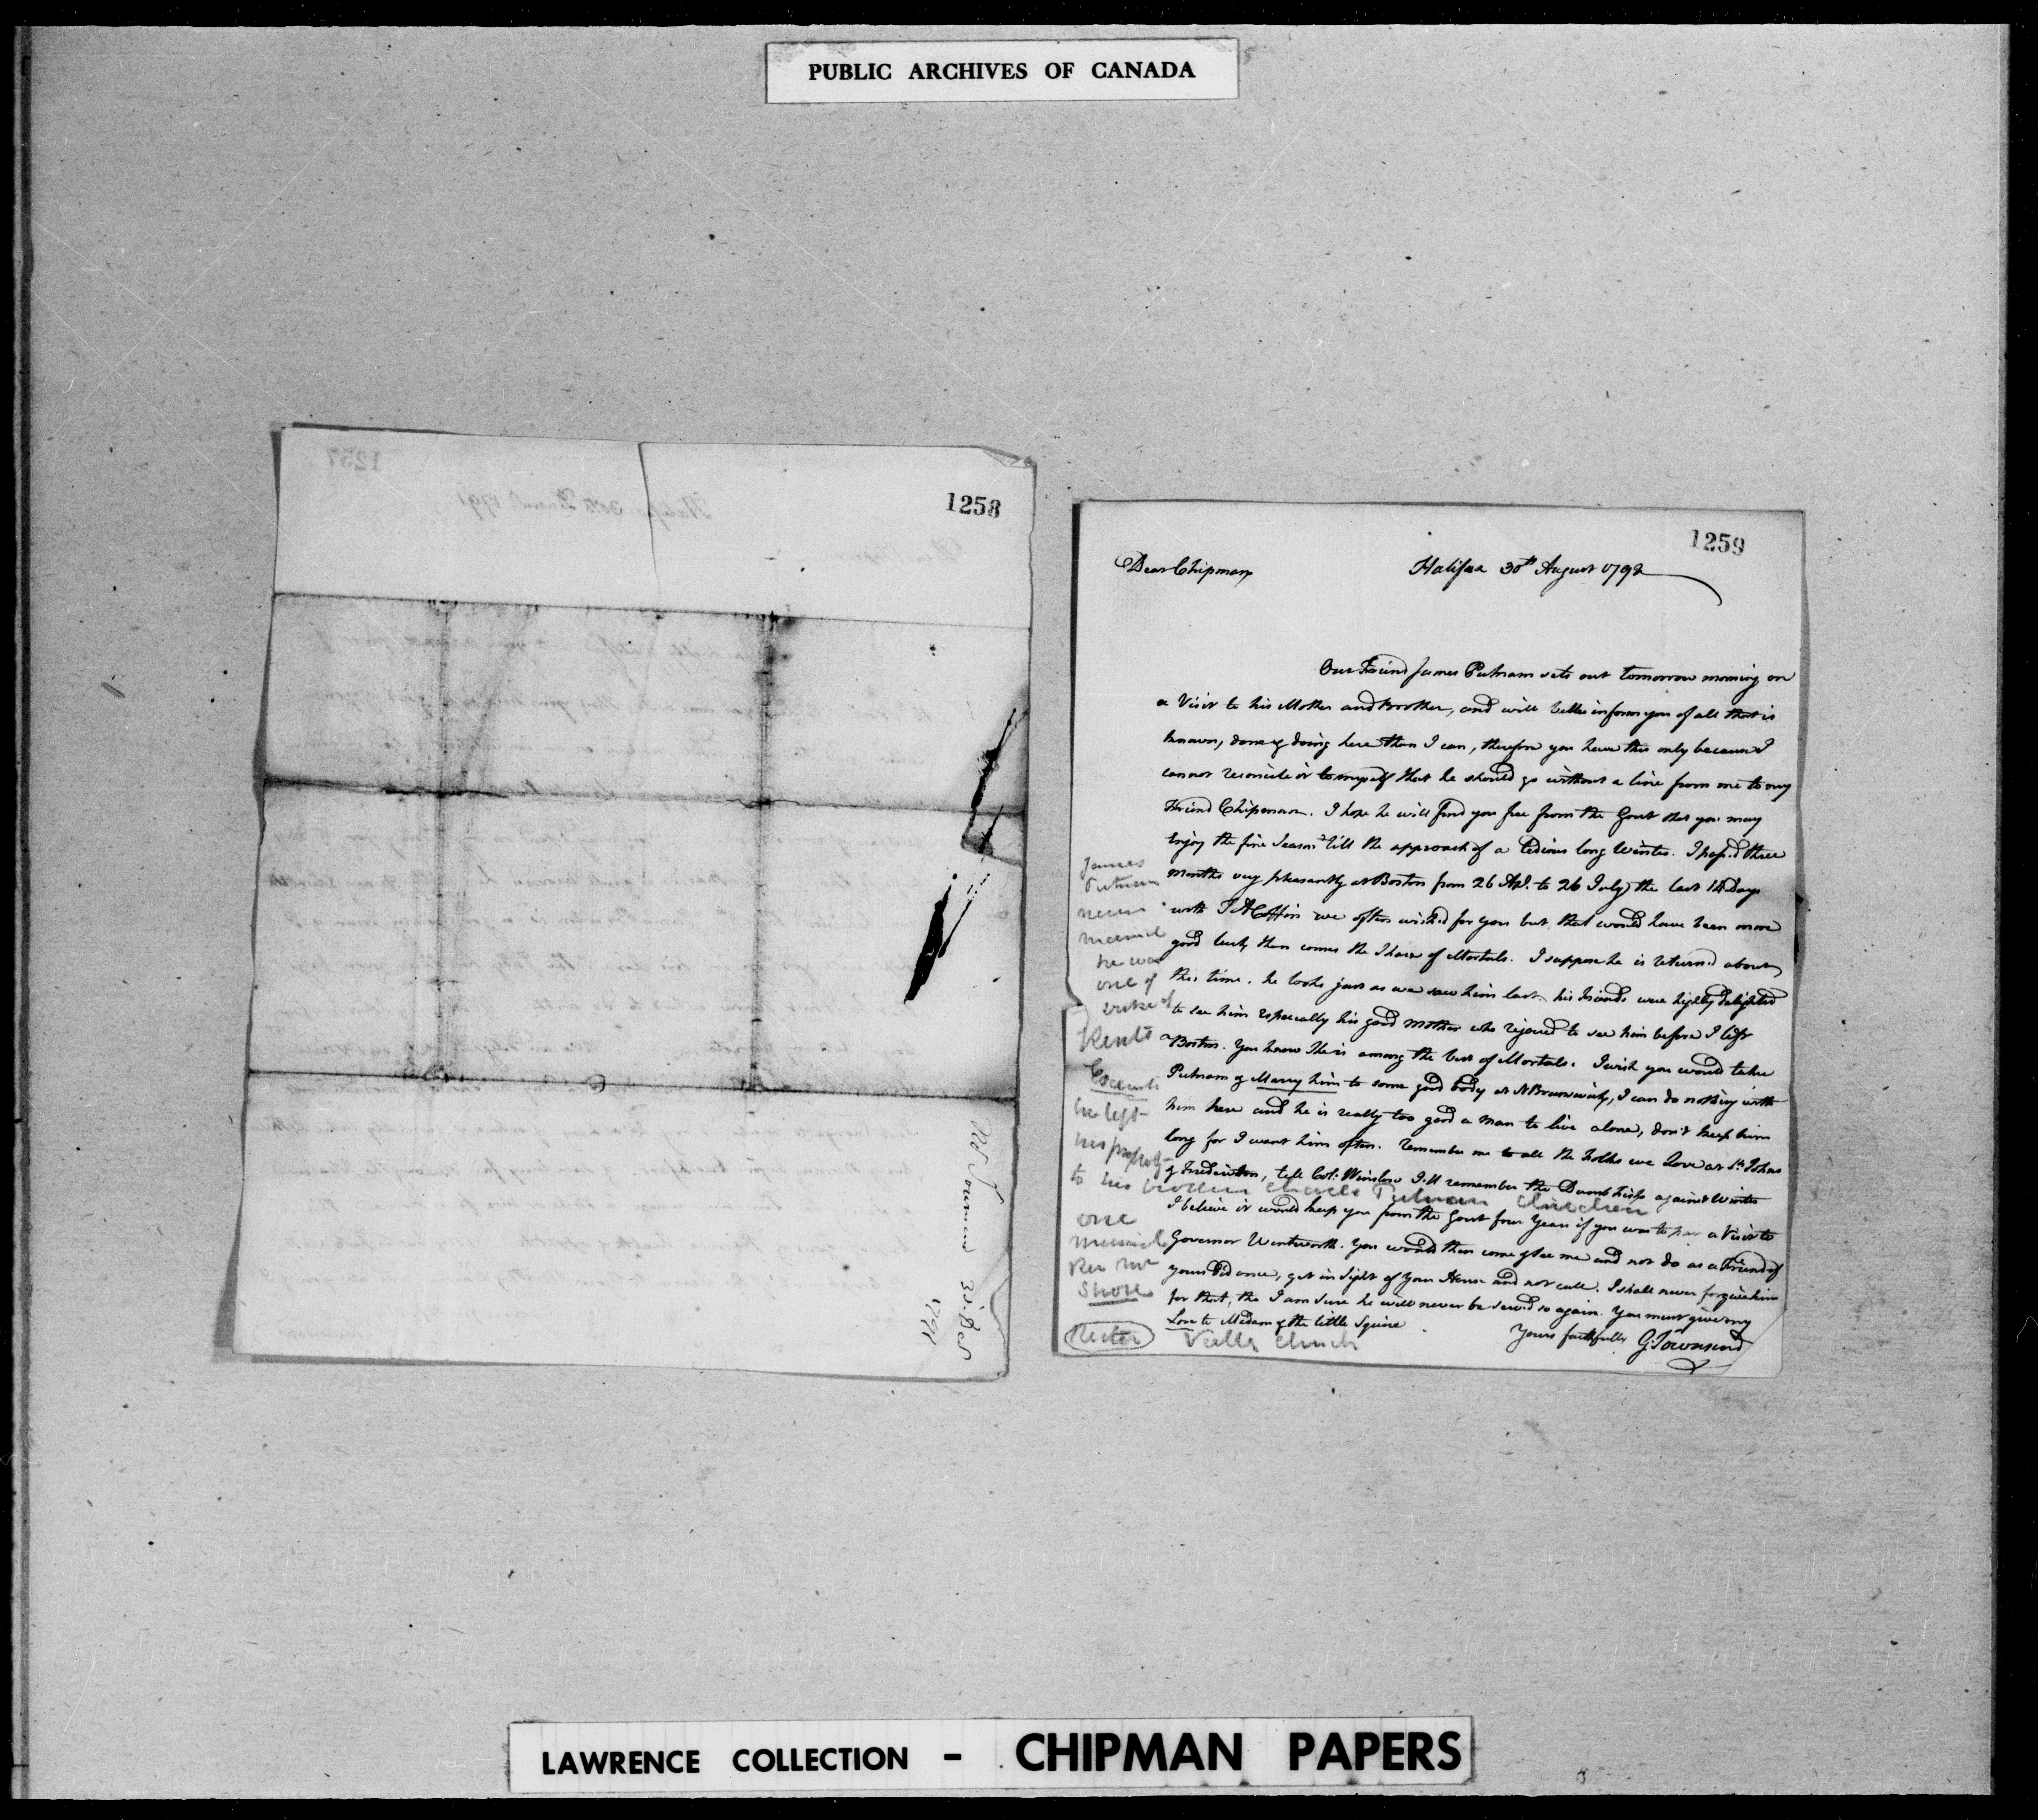 PUBLIC ARCHIVES OF CANADA
1257
1258
30 Decr
1791
1259
Dear Chipman
Halifax 30th August 1792
Our Friend James Putnam sets out tomorrow morning on
a Visit to his Mother and Brother, and will better inform you of all that is
known, done & doing here than I can, therefore you have this only because I
cannot reconcile it to myself that he should go without a line from me to my
Friend Chipman. I hope he will find you free from the Gout that you may
enjoy the fine Season till the approach of a tedious long Winter. I pass'd three
months very pleasantly at Boston from 26 Apl. to 26 July the last 14 Days
with J A Coffin we often wish'd for you but that would have been more
good luck than comes the Share of Mortals. I suppose he is return'd about
this time. he looks just as we saw him last. his Friends were highly delighted
to see him especially his good Mother who rejoiced to see him before I left
Boston. You know She is among the best of Mortals. I wish you would take
Putnam & Marry him to some good body at N Brunswick, I can do nothing with
him here and he is really too good a man to live alone, don't keep him
long for I want him often. remember me to all the Folks we Love at St. Johns
& Frederickton, tell Col. Winslow I'll remember the Dumb Fish against Winter
I believe it would keep you from the Gout four Years if you was to pay a Visit to
Governor Wentworth. You would then come & see me and not do as a Friend of
yours did once, get in Sight of your House and not call. I shall never forgive him
for that, tho I am sure he will never be serv'd so again. You must give my
Love to Madam & the little Squire
Yours faithfully G. Townsend
James
Putnam
never
married
he was
one of
Duke of
Kents
Executors
he left
his property
to his brother Charles Putnam Children
one
married
Rev Mr
Shore
Rector
Church
LAWRENCE COLLECTION - CHIPMAN PAPERS